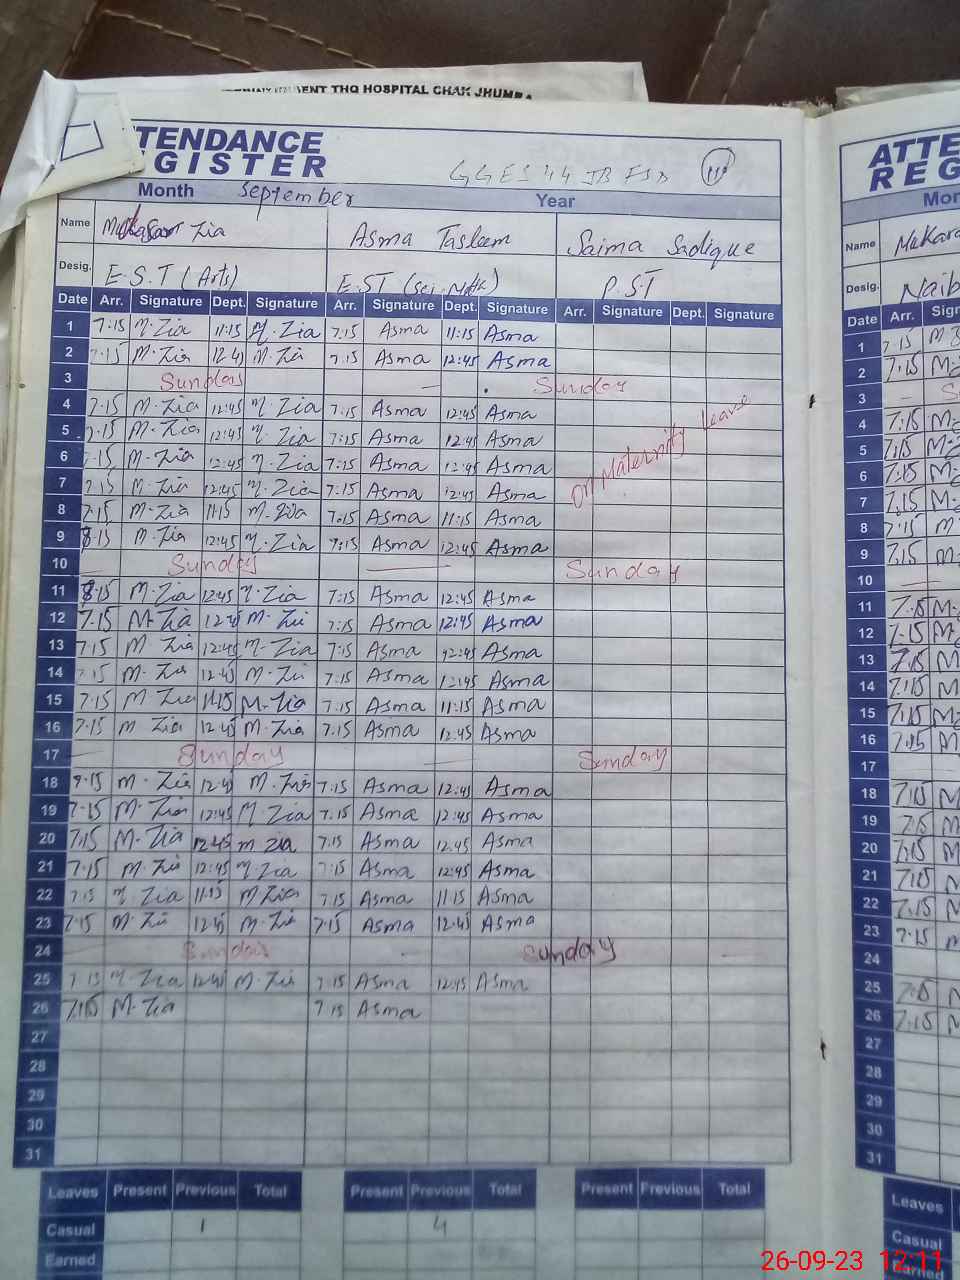 ENT THQ HOSPITAL CHAK JHUMRA
TENDANCE
GISTER
GGES 44 JB FSD
Month September Year
Name Zia Asma Tasleem Saima Sadique
Desig. E.S.T (Arts) E.ST (Sci-Math) P.S.T
Date Arr. Signature Dept. Signature Arr. Signature Dept. Signature Arr. Signature Dept. Signature
1 7:15 M.Zia 11:15 M.Zia 7:15 Asma 11:15 Asma
2 7:15 M.Zia 12:45 M.Zia 7:15 Asma 12:45 Asma
3 Sunday Sunday
4 7:15 M.Zia 12:45 M.Zia 7:15 Asma 12:45 Asma
5 7:15 M.Zia 12:45 M.Zia 7:15 Asma 12:45 Asma
6 7:15 M.Zia 12:45 M.Zia 7:15 Asma 12:45 Asma
On Maternity Leave
7 7:15 M.Zia 12:45 M.Zia 7:15 Asma 12:45 Asma
8 7:15 M.Zia 11:15 M.Zia 7:15 Asma 11:15 Asma
9 8:15 M.Zia 12:45 M.Zia 7:15 Asma 12:45 Asma
10 Sunday Sunday
11 8:15 M.Zia 12:45 M.Zia 7:15 Asma 12:45 Asma
12 7:15 M.Zia 12:45 M.Zia 7:15 Asma 12:45 Asma
13 7:15 M.Zia 12:45 M.Zia 7:15 Asma 12:45 Asma
14 7:15 M.Zia 12:45 M.Zia 7:15 Asma 12:45 Asma
15 7:15 M.Zia 11:15 M.Zia 7:15 Asma 11:15 Asma
16 7:15 M.Zia 12:45 M.Zia 7:15 Asma 12:45 Asma
17 Sunday Sunday
18 7:15 M.Zia 12:45 M.Zia 7:15 Asma 12:45 Asma
19 7:15 M.Zia 12:45 M.Zia 7:15 Asma 12:45 Asma
20 7:15 M.Zia 12:45 M.Zia 7:15 Asma 12:45 Asma
21 7:15 M.Zia 12:45 M.Zia 7:15 Asma 12:45 Asma
22 7:15 M.Zia 11:15 M.Zia 7:15 Asma 11:15 Asma
23 7:15 M.Zia 12:45 M.Zia 7:15 Asma 12:45 Asma
24 Sunday Sunday
25 7:15 M.Zia 12:45 M.Zia 7:15 Asma 12:45 Asma
26 7:15 M.Zia 7:15 Asma
27
28
29
30
31
Leaves Present Previous Total Present Previous Total Present Previous Total
Casual 1 4
Earned
ATTE
REG
Mon
Name
Desig. Naib
Date Arr.
1 7:15 M
2 7:15 M
3
4 7:15 M
5 7:15 M
6 7:15 M
7 7:15 M
8 7:15 M
9 7:15 M
10
11 7:15 M
12 7:15 M
13 7:15 M
14 7:15 M
15 7:15 M
16 7:15 M
17
18 7:15 M
19 7:15 M
20 7:15 M
21 7:15 M
22 7:15 M
23 7:15 M
24
25 7:15 M
26 7:15 M
27
28
29
30
31
Leaves
Casual
Earned
26-09-23 12:11